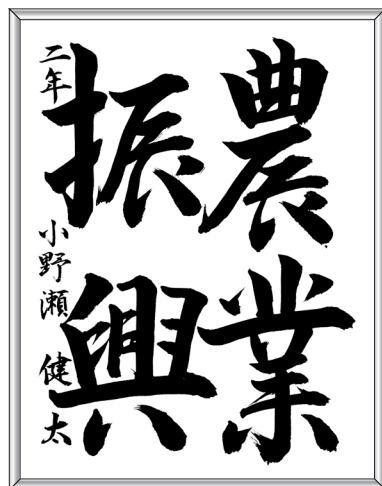 農業
振興
二年 小野瀬 健太